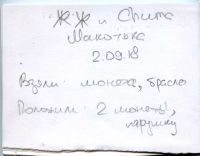 ЖЖ и Спита
Макотька
2.09.18
Взяли: монета, брасле
Положили: 2 монеты,
игрушку